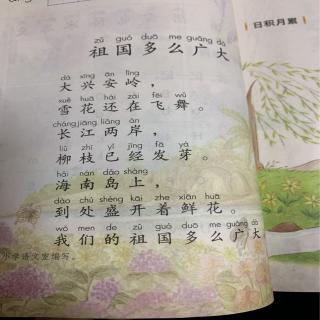 zǔ guó duō me guǎng dà
祖国多么广大
dà xīng ān lǐng
大兴安岭，
xuě huā hái zài fēi wǔ
雪花还在飞舞。
cháng jiāng liǎng àn
长江两岸，
liǔ zhī yǐ jīng fā yá
柳枝已经发芽。
hǎi nán dǎo shàng
海南岛上，
dào chù shèng kāi zhe xiān huā
到处盛开着鲜花。
wǒ men de zǔ guó duō me guǎng dà
我们的祖国多么广大
小学语文室编写。
日积月累